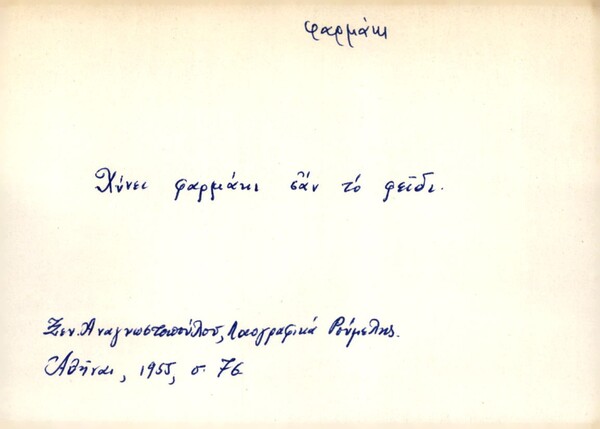 φαρμάκι
Χύνει φαρμάκι σὰν τό φεῖδι.
Ξεν. Ἀναγνωστοπούλου, Λαογραφικά Ρούμελης.
Ἀθῆναι, 1955, σ. 76